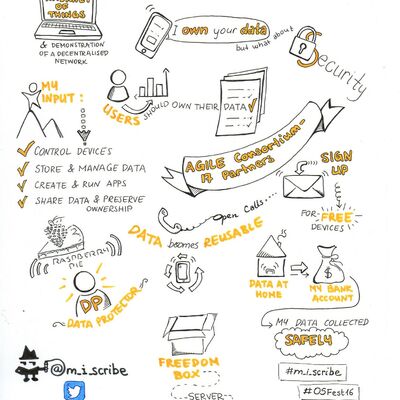 OF THINGS
& DEMONSTRATION
OF A DECENTRALISED
NETWORK
I own your data
but what about
Security
MY
INPUT:
USERS
SHOULD OWN THEIR DATA
CONTROL DEVICES
STORE & MANAGE DATA
CREATE & RUN APPS
SHARE DATA & PRESERVE
OWNERSHIP
AGILE Consortium-
17 Partners
SIGN
UP
FOR FREE
DEVICES
Open Calls...
DATA becomes REUSABLE
RASPBERRY
PIE
DP
DATA PROTECTOR
DATA AT
HOME
$
MY BANK
ACCOUNT
MY DATA COLLECTED
SAFELY
FREEDOM
BOX
SERVER
@m_i_scribe
#m_i_scribe
#OSFest16